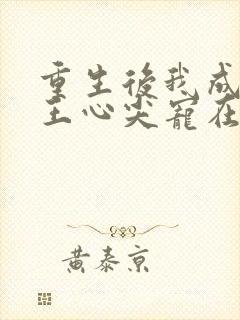 重生後我成
王心尖寵在
黃泰京